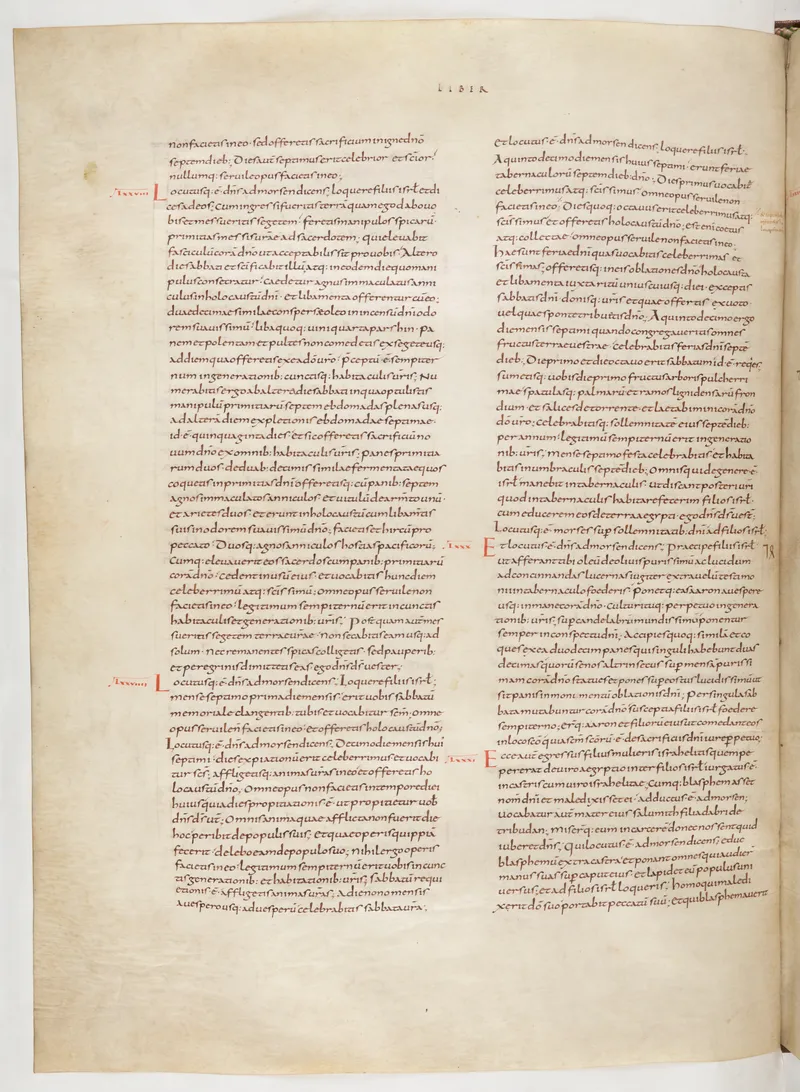 LIBER
non facietis in eo · sed offeretis sacrificium in igne dño
septem dieb; Dies aut̄ septimus erit celebrior et sc̄ior ·
nullumq; seruile opus facietis in eo ;
lxxviii Locutusq; ē dn̄s ad moysen dicens ; Loquere filiis isrl̄ et di
ces ad eos ; Cum ingressi fueritis terrā quam ego dabo uo
bis et messueritis segetem · feretis manipulos spicarū
primitias messis ur̄ae ad sacerdotem ; qui eleuabit
fasciculū corā dn̄o ut acceptabilis sit pro uobis altero
die sabbati et sc̄ificabit illū ; atq; in eodem die quo mani
pulus consecratur · caedetur agnus immaculatus anni
culus in holocaustū dn̄i · et libamenta offerentur cū eo ;
duae decimae similae conspersae oleo in incensū dn̄i odo
remq; suauissimū · liba quoq; uini quarta pars hin · pa
nem et polentam et pultes non comedetis ex segete usq;
ad diem qua offeretis ex ea dō ur̄o ; p̄ceptū ē sempiter
num in generationib; cunctisq; habitaculis ur̄is ; Nu
merabitis ergo ab altero die sabbati in quo optulistis
manipulū primitiarū septem ebdomadas plenas usq;
ad alterā diem expletionis ebdomadae septimae ·
id ē quinquaginta dies et sic offeretis sacrificiū no
uum dn̄o ex omnib; habitaculis ur̄is ; panes primitia
rum duos de duab; decimis similae fermentatae quos
coquetis in primitias dn̄i offeretisq; cū panib; septem
agnos immaculatos anniculos et uitulū de armto unū ·
et arietes duos et erunt in holocaustū cum libamtis
suis in odorem suauissimū dn̄o ; facietis et hircū pro
peccato · Duosq; agnos anniculos hostias pacificorū ;
Cumq; eleuauerit eos sacerdos cum panib; primitiarū
corā dn̄o · cedent in usū eius · et uocabitis hunc diem
celeberrimū atq; sc̄issimū ; omne opus seruile non
facietis in eo ; legitimum sempiternū erit in cunctis
habitaculis et generationib; ur̄is ; Postquam aut̄ mes
sueritis segetem terrae ur̄ae · non secabitis eam usq; ad
solum · nec remanentes spicas colligetis · sed pauperib;
et peregrinis dimittetis eas ; ego dn̄s d̄s uester ;
lxxviiii Locutusq; ē dn̄s ad moysen dicens ; Loquere filiis isrl̄ ;
mense septimo prima die mensis · erit uobis sabbatū
memoriale clangentib; tubis et uocabitur sc̄m ; omne
opus seruile n̄ facietis in eo · et offeretis holocaustū dn̄o ;
Locutusq; ē dn̄s ad moysen dicens ; Decimo die mensis hui
septimi · dies expiationū erit celeberrimus et uocabi
tur sc̄s ; affligetisq; animas ur̄as in eo et offeretis ho
locaustū dn̄o ; Omne opus non facietis in tempore diei
huius quia dies propitiationis ē · ut propitietur uob
dn̄s d̄s ur̄ ; Omnis anima quae afflicta non fuerit die
hoc peribit de populis suis ; et quae operis quippiā
fecerit · delebo eam de populo suo ; nihil ergo operis
facietis in eo · legitimum sempiternū erit uobis in cunc
tis generationib; et habitationib; ur̄is ; sabbatū requi
etionis ē · affligetis animas ur̄as ; a die nono mensis
a uespero usq; ad uesperū celebrabitis sabbata ur̄a ;
et locutus ē dn̄s ad moysen dicens ; loquere filiis isrl̄ ·
A quinto decimo die mensis huius septimi · erunt feriae
tabernaculorū septem dieb; dn̄o ; Dies primus uocabit̄
celeberrimus atq; sc̄issimus ; omne opus seruile non
facietis in eo ; Dies quoq; octauus erit celeberrimus atq;
sc̄issimus et offeretis holocaustū dn̄o ; est enī coetus
atq; collectae · omne opus seruile non facietis in eo ·
hae sunt feriae dn̄i quas uocabitis celeberrimas et
sc̄issimas ; offeretisq; in eis oblationes dn̄o holocausta
et libamenta iuxta ritū unius cuiusq; diei · exceptis
sabbatis dn̄i · donisq; ur̄is et quae offertis ex uoto ·
uel quae sponte tribuitis dn̄o ; A quinto decimo ergo
die mensis septimi quando congregaueritis omnes
fructus terrae uestrae · celebrabitis ferias dn̄i septē
dieb; Die primo et die octauo erit sabbatum · id ē requies ;
sumetisq; uobis die primo fructus arboris pulcherri
mae spatulasq; palmarū et ramos ligni densarū fron
dium · et salices de torrente · et laetabimini corā dn̄o
dō ur̄o ; celebrabitisq; sollemnitatē eius septē dieb;
per annum ; legitimū sempiternū erit in generatio
nib; ur̄is ; mense septimo festa celebrabitis et habita
bitis in umbraculis septē dieb; omnisq; qui de genere ē
isrl̄ manebit in tabernaculis · ut discant posteri ur̄i
quod in tabernaculis habitare fecerim filios isrl̄ ·
cum educerem eos de terra aegypti · ego dn̄s d̄s ur̄ ;
Locutusq; ē moyses sup sollemnitatib; dn̄i ad filios isrl̄ ·
lxxx Et locutus ē dn̄s ad moysen dicens ; praecipe filiis isrl̄
ut afferant tibi oleū de oliuis purissimū ac lucidum
ad concinnandas lucernas iugiter extra uelū testimo
nii in tabernaculo foederis ; ponetq; eas aaron a uespere
usq; in mane corā dn̄o · cultu rituq; perpetuo in genera
tionib; ur̄is ; sup candelabrū mundissimū ponentur
semper in conspectu dn̄i ; Accipies quoq; similā et co
ques ex ea duodecim panes qui singuli habebunt duas
decimas quorū senos altrinsecus sup mensā purissi
mam corā dn̄o statues et pones sup eos tus lucidissimū ut
sit panis in monumentū oblationis dn̄i ; per singula sab
bata mutabuntur corā dn̄o suscepti a filiis isrl̄ foedere
sempiterno ; er̄q; aaron et filiorū eius ut comedant eos
in loco sc̄o quia sc̄m sc̄orū ē de sacrificiis dn̄i iure ppetuo ;
lxxxi Ecce aut̄ egressus filius mulieris isrhelitis quem pe
pererat de uiro aegyptio inter filios isrl̄ iurgatus ē
in castris cum uiro isrhelitae ; Cumq; blasphemasset
nomē dn̄i et maledixisset ei · adductus ē ad moysen ;
uocabatur aut̄ mater eius salumith filia dabri de
tribu dan ; miserq; eum in carcerē donec nossent quid
iuberet dn̄s ; qui locutus ē ad moysen dicens ; educ
blasphemū extra castra et ponant omnes qui audier
manus suas sup caput eius et lapidet eū populus uni
uersus ; et ad filios isrl̄ loqueris ; homo qui maledi
xerit dō suo portabit peccatū suū ; et qui blasphemauerit